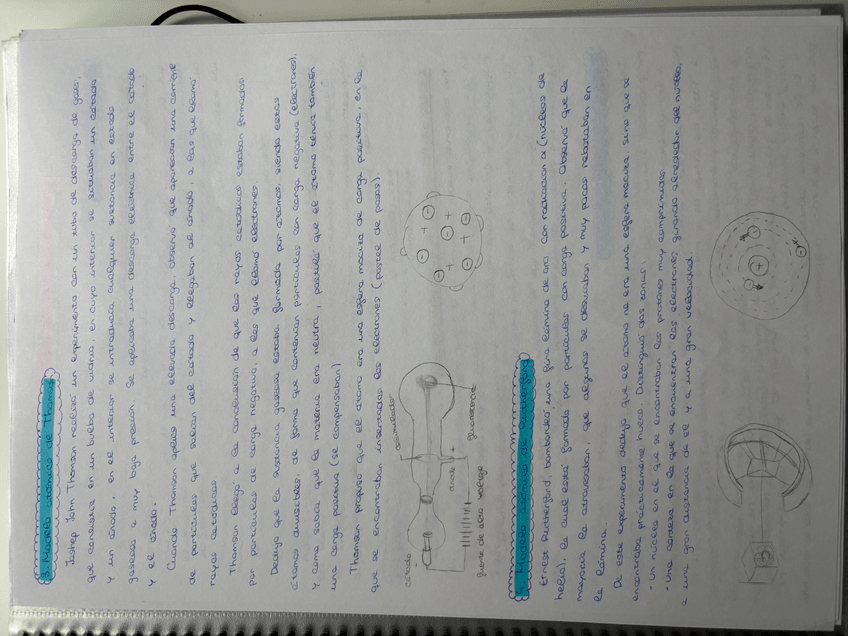 3. Modelo atómico de Thomson
Joshep John Thomson realizó un experimento con un tubo de descarga de gases,
que consistía en un bulbo de vidrio, en cuyo interior se situaban un cátodo
y un ánodo, en el interior se introducía cualquier sustancia en estado
gaseoso a muy baja presión. Se aplicaba una descarga eléctrica entre el cátodo
y el ánodo.
Cuando Thomson aplicó una elevada descarga, observó que aparecían una corriente
de partículas que salían del cátodo y llegaban al ánodo, a las que llamó
rayos catódicos
Thomson llegó a la conclusión de que los rayos catódicos estaban formados
por partículas de carga negativa, a las que llamó electrones.
Dedujo que la sustancia gaseosa estaba formada por átomos, siendo estos
átomos divisibles, de forma que contenían partículas con carga negativa (electrones).
Y como sabía que la materia era neutra, postuló que el átomo tenía también
una carga positiva (se compensaban)
Thomson propuso que el átomo era una esfera maciza de carga positiva, en la
que se encontraban insertados los electrones (pastel de pasas)
cátodo
acumulador
ánodo
+
fuente de alto voltaje
4. Modelo atómico de Rutherford
Ernest Rutherford, bombardeó una fina lámina de oro con radiación α (núcleos de
helio), la cual está formada por partículas con carga positiva. Observó que la
mayoría la atravesaban, que algunas se desviaban y muy pocas rebotaban en
la lámina.
De este experimento dedujo que el átomo no era una esfera maciza, sino que se
encontraba prácticamente hueco. Distinguió dos zonas:
- Un núcleo en el que se encontraban los protones muy comprimidos
- Una corteza en la que se encuentran los electrones girando alrededor del núcleo,
a una gran distancia de él y a una gran velocidad.